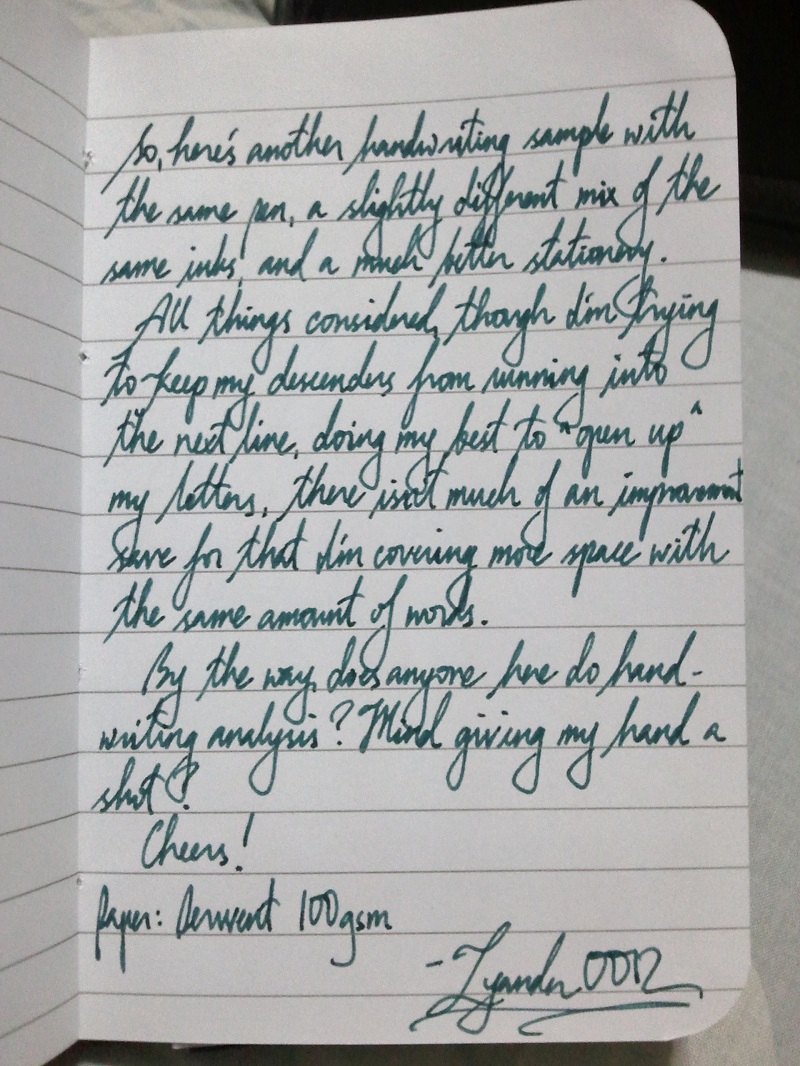 So, here's another handwriting sample with
the same pen, a slightly different mix of the
same inks, and a much better stationery.
All things considered, though I'm trying
to keep my descenders from running into
the next line, doing my best to "open up"
my letters, there isn't much of an improvement
save for that I'm covering more space with
the same amount of words.
By the way, does anyone here do hand-
writing analysis? Mind giving my hand a
shot?
Cheers!
Paper: Derwent 100gsm
-Lysander